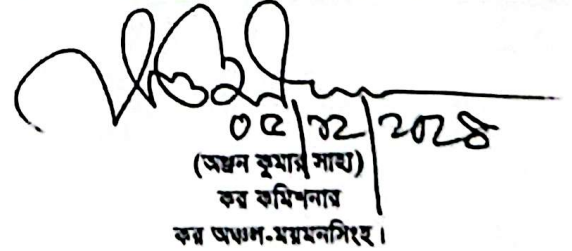 ০৫/১২/২০২৪
(অঞ্জন কুমার সাহা)
কর কমিশনার
কর অঞ্চল-ময়মনসিংহ।